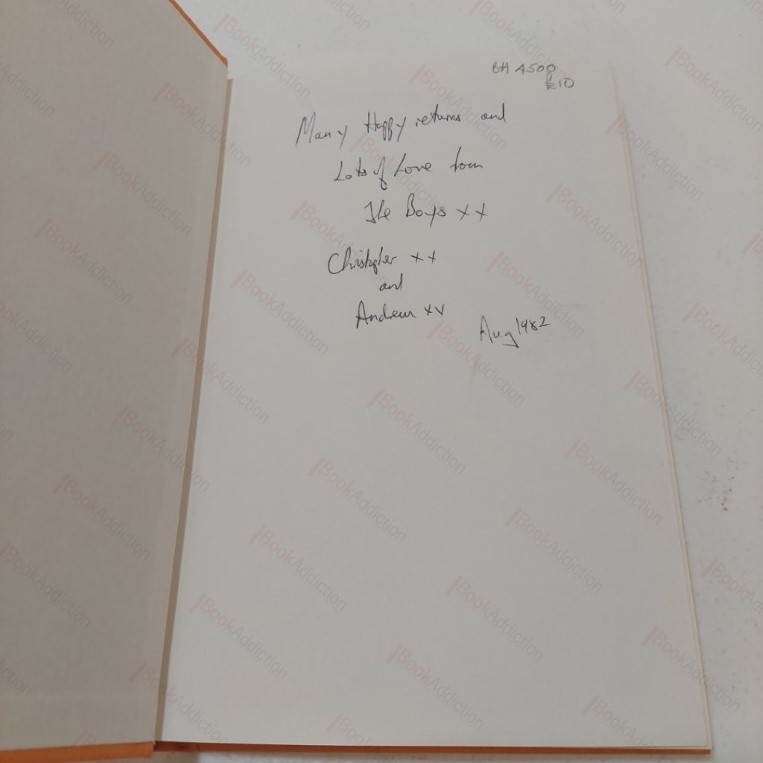 BH 4500
£10
Many Happy returns and
Lots of Love from
The Boys xx
Christopher xx
and
Andrew xx
Aug 1982
BookAddiction